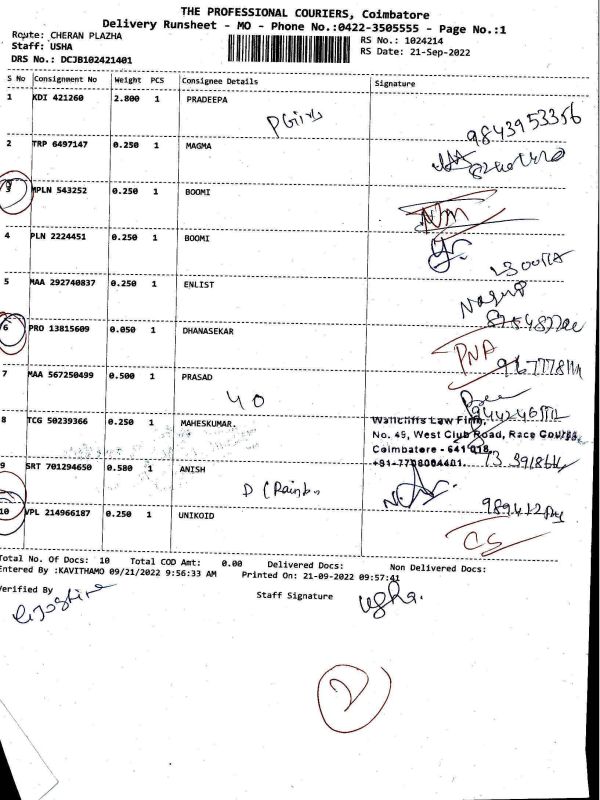 THE PROFESSIONAL COURIERS, Coimbatore
Delivery Runsheet - MO - Phone No.:0422-3505555 - Page No.:1
Route: CHERAN PLAZHA
RS No.: 1024214
Staff: USHA
RS Date: 21-Sep-2022
DRS No.: DCJB102421401
S No Consignment No Weight PCS Consignee Details Signature
1 KDI 421260 2.800 1 PRADEEPA
9843953356
2 TRP 6497147 0.250 1 MAGMA
3 MPLN 543252 0.250 1 BOOMI
4 PLN 2224451 0.250 1 BOOMI
5 MAA 292740837 0.250 1 ENLIST
6 PRO 13815609 0.050 1 DHANASEKAR
PNA
7 MAA 567250499 0.500 1 PRASAD
40
8 TCG 50239366 0.250 1 MAHESKUMAR.
Wallcliffs Law Firm,
No. 49, West Club Road, Race Course,
Coimbatore - 641 018.
+91-7708004401.
9 SRT 701294650 0.580 1 ANISH
10 VPL 214966187 0.250 1 UNIKOID
CS
Total No. Of Docs: 10 Total COD Amt: 0.00 Delivered Docs: Non Delivered Docs:
Entered By :KAVITHAMO 09/21/2022 9:56:33 AM Printed On: 21-09-2022 09:57:41
Verified By
Staff Signature
2